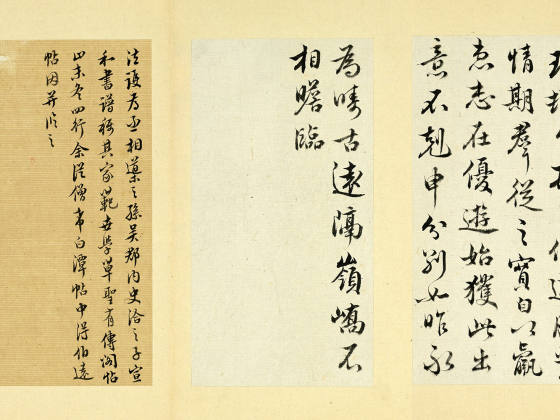 情期羣從之寶自以羸
患志在優遊始獲此出
意不剋申分別如昨永
為疇古遠隔嶺嶠不
相瞻臨
法護為丞相導之孫吳郡內史洽之子宣
和書譜稱其家範世學草聖有傳閣帖
止末冬四行余從僧希白潭帖中得伯遠
帖因並臨之